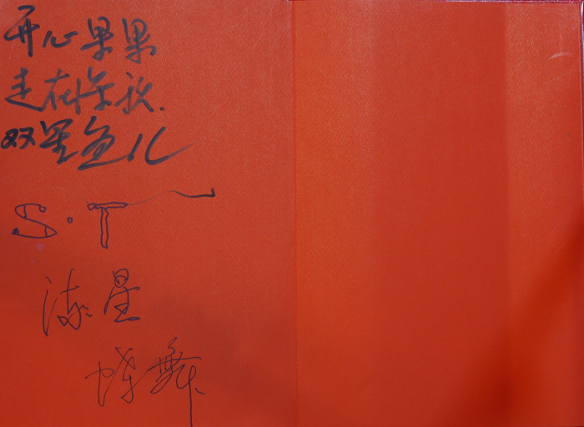 开心果果
走在年秋.
双星鱼儿
S·T
流星
蝶舞